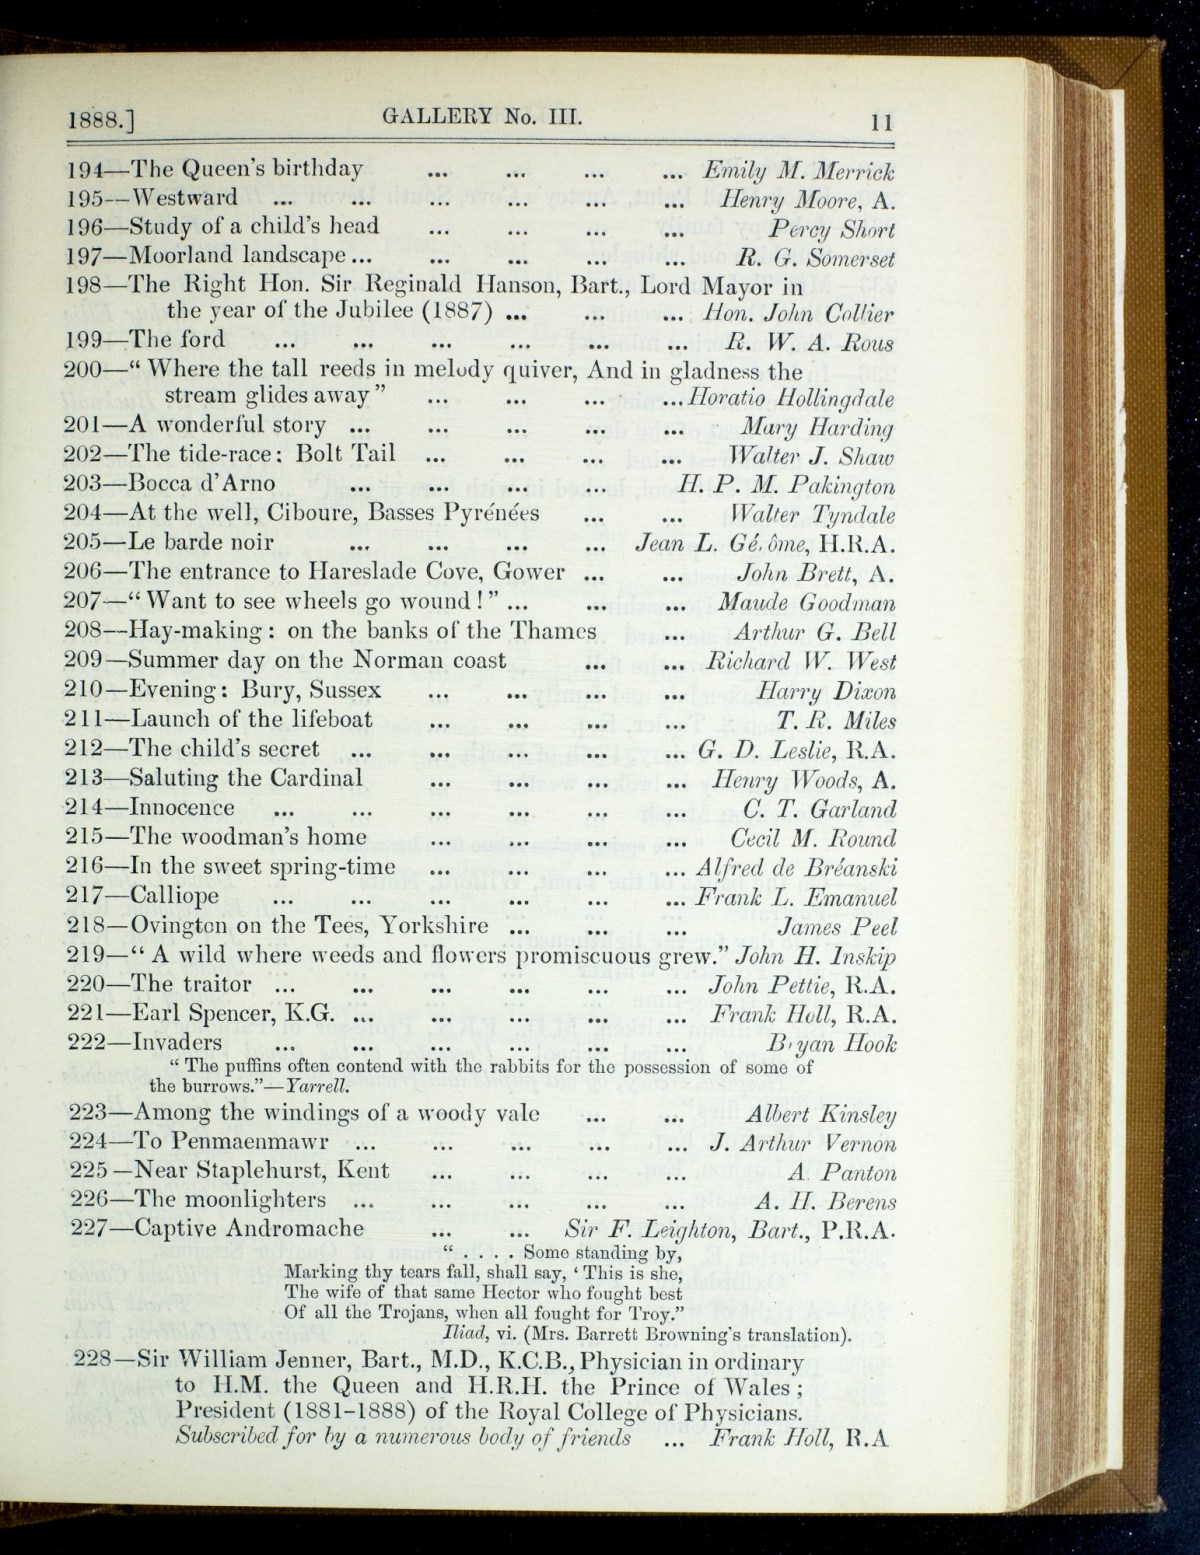 1888.] GALLERY No. III. 11
194—The Queen's birthday ... ... ... ... Emily M. Merrick
195—Westward ... ... ... ... ... ... Henry Moore, A.
196—Study of a child's head ... ... ... ... Percy Short
197—Moorland landscape ... ... ... ... ... R. G. Somerset
198—The Right Hon. Sir Reginald Hanson, Bart., Lord Mayor in
the year of the Jubilee (1887) ... ... ... Hon. John Collier
199—The ford ... ... ... ... ... ... R. W. A. Rous
200—“ Where the tall reeds in melody quiver, And in gladness the
stream glides away ” ... ... ... ... Horatio Hollingdale
201—A wonderful story ... ... ... ... ... Mary Harding
202—The tide-race: Bolt Tail ... ... ... ... Walter J. Shaw
203—Bocca d'Arno ... ... ... ... H. P. M. Pakington
204—At the well, Ciboure, Basses Pyrénées ... ... Walter Tyndale
205—Le barde noir ... ... ... ... Jean L. Gérôme, H.R.A.
206—The entrance to Hareslade Cove, Gower ... ... John Brett, A.
207—“ Want to see wheels go wound ! ” ... ... ... Maude Goodman
208—Hay-making : on the banks of the Thames ... Arthur G. Bell
209—Summer day on the Norman coast ... ... Richard W. West
210—Evening : Bury, Sussex ... ... ... ... Harry Dixon
211—Launch of the lifeboat ... ... ... ... T. R. Miles
212—The child's secret ... ... ... ... ... G. D. Leslie, R.A.
213—Saluting the Cardinal ... ... ... ... Henry Woods, A.
214—Innocence ... ... ... ... ... ... C. T. Garland
215—The woodman's home ... ... ... ... Cecil M. Round
216—In the sweet spring-time ... ... ... ... Alfred de Bréanski
217—Calliope ... ... ... ... ... ... Frank L. Emanuel
218—Ovington on the Tees, Yorkshire ... ... ... James Peel
219—“ A wild where weeds and flowers promiscuous grew.” John H. Inskip
220—The traitor ... ... ... ... ... ... John Pettie, R.A.
221—Earl Spencer, K.G. ... ... ... ... ... Frank Holl, R.A.
222—Invaders ... ... ... ... ... ... Bryan Hook
“ The puffins often contend with the rabbits for the possession of some of
the burrows.”—Yarrell.
223—Among the windings of a woody vale ... ... Albert Kinsley
224—To Penmaenmawr ... ... ... ... ... J. Arthur Vernon
225—Near Staplehurst, Kent ... ... ... ... A. Panton
226—The moonlighters ... ... ... ... ... A. H. Berens
227—Captive Andromache ... ... Sir F. Leighton, Bart., P.R.A.
“ . . . . Some standing by,
Marking thy tears fall, shall say, ‘ This is she,
The wife of that same Hector who fought best
Of all the Trojans, when all fought for Troy.”
Iliad, vi. (Mrs. Barrett Browning's translation).
228—Sir William Jenner, Bart., M.D., K.C.B., Physician in ordinary
to H.M. the Queen and H.R.H. the Prince of Wales ;
President (1881-1888) of the Royal College of Physicians.
Subscribed for by a numerous body of friends ... Frank Holl, R.A